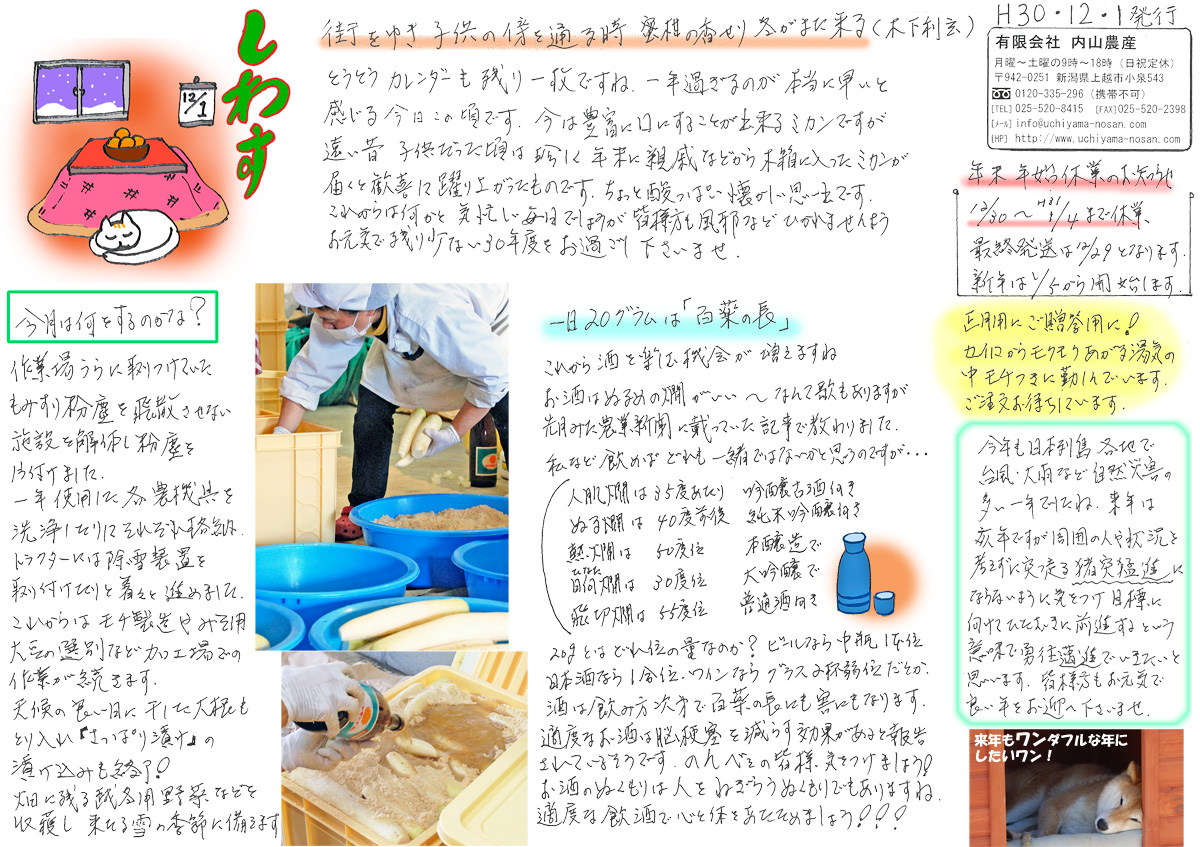 しわす
12/1
街をゆき子供の傍を通る時 蜜柑の香せり 冬がまた来る(木下利玄)
とうとうカレンダーも残り一枚ですね。一年過ぎるのが本当に早いと
感じる今日この頃です。今は豊富に口にすることが出来るミカンですが
遠い昔 子供だった頃は 珍しく 年末に親戚などから木箱に入ったミカンが
届くと歓喜に躍り上がったものです。ちょと酸っぱい懐かしい思い出です。
これからは何かと気忙しい毎日でしょうが皆様方も風邪などひかれませんよう
お元気で残り少ない30年度をお過ごし下さいませ。
H30・12・1発行
有限会社 内山農産
月曜〜土曜の9時〜18時(日祝定休)
〒942-0251 新潟県上越市小泉543
0120-335-296(携帯不可)
[TEL] 025-520-8415 [FAX] 025-520-2398
[メール] info@uchiyama-nosan.com
[HP] http://www.uchiyama-nosan.com
年末年始休業のお知らせ
12/30〜H31 1/4まで休業
最終発送は12/29となります。
新年は1/5から開始します。
正月用にご贈答用に!
セイロからモクモクあがる湯気の
中モチつきに勤しんでいます。
ご注文お待ちしています。
今年も日本列島各地で
台風・大雨など自然災害の
多い一年でしたね。来年は
亥年ですが周囲の人や状況を
考えずに突走る猪突猛進に
ならないように気をつけ目標に
向けてひたむきに前進するという
意味で勇往邁進でいきたいと
思います。皆様方もお元気で
良い年をお迎へ下さいませ。
来年もワンダフルな年に
したいワン!
今月は何をするのかな?
作業場うらに取りつけていた
もみすり粉塵を飛散させない
施設を解体し粉塵を
片付けました。
一年使用した各農機具を
洗浄したりにそれぞれ格納。
トラクターには除雪装置を
取り付けたりと着々と進めました。
これからはモチ製造やみそ用
大豆の選別など加工場での
作業が続きます。
天候の良い日に干した大根も
とり入れ『さっぱり漬け』の
漬け込みも終了!
畑に残る越冬用野菜などを
収穫し 来たる雪の季節に備えます
一日20グラムは「百薬の長」
これから酒を飲む機会が増えますね
お酒はぬるめの燗がいい〜なんて歌もありますが
先月みた農業新聞に載っていた記事で教わりました。
私など飲めばどれも一緒ではないかと思うのですが・・・
人肌燗は35度あたり 吟醸古酒向き
ぬる燗は 40度前後 純米吟醸向き
熱燗は 50度位 本醸造で
日向燗は 30度位 大吟醸で
ひなた
飛切燗は 55度位 普通酒向き
20gとはどれ位の量なのか?ビールなら中瓶1本位
日本酒なら1合位、ワインならグラス2杯弱位だそうだ。
酒は飲み方次第で百薬の長にも害にもなります。
適度なお酒は脳梗塞を減らす効果があると報告
されているそうです。のんべえの皆様気をつけましょう!
お酒のぬくもりは人をねぎらうぬくもりでもありますね。
適度な飲酒で心と体をあたためましょう!!!